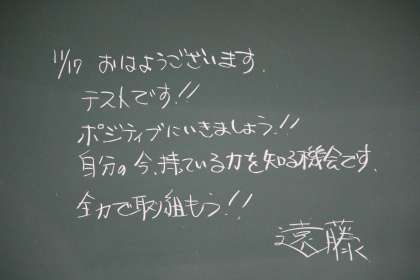 11/17 おはようございます.
テストです!!
ポジティブにいきましょう!!
自分の今、持ている力を知る機会です.
全力で取り組もう!!
遠藤